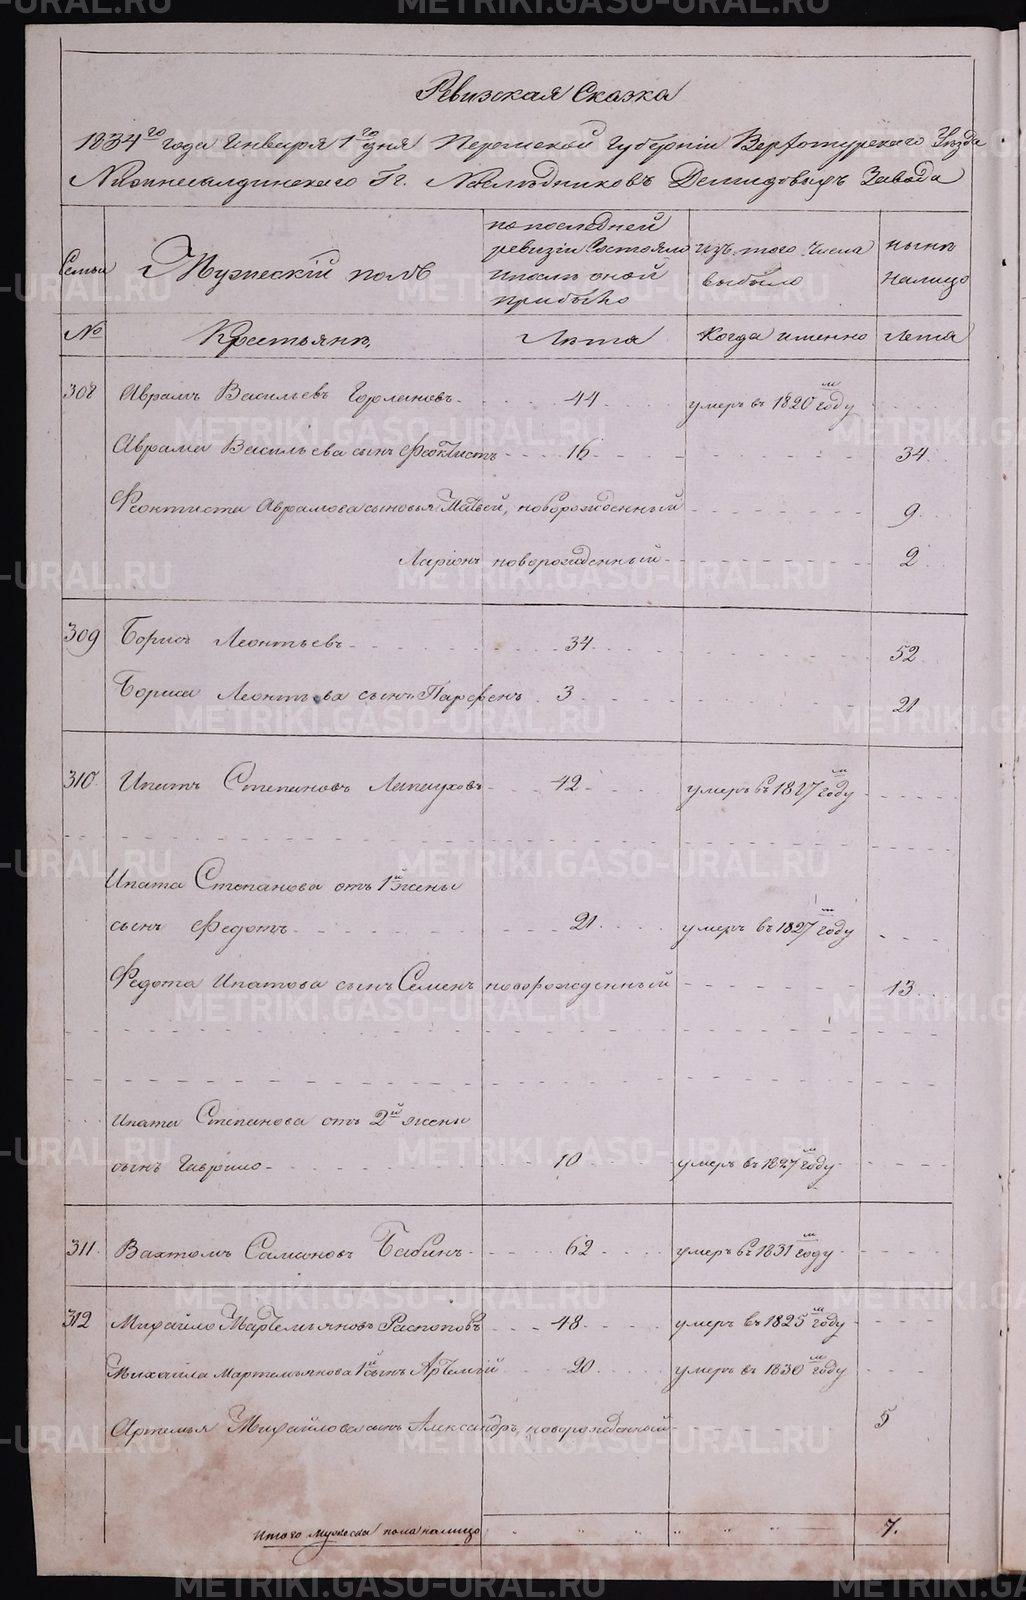 Ревизская Сказка
1834го года Генваря 1го дня Пермской Губерніи Верхотурскаго Уѣзда
Нижнесалдинскаго Гг. Наслѣдниковъ Демидовыхъ Завода
Семьи Мужескій полъ по последней ревизіи Состояло и послѣ оной прибыло изъ того числа выбыло нынѣ на лицо
№ Крестьяне, Лѣта Когда именно Лета
308 Аврамъ Васильевъ Горлановъ 44 умеръ въ 1820м году
Аврама Васильева сынъ Феоктистъ 16 34
Феоктиста Аврамова сыновья Матвей, новорожденный 9
Ларіонъ новорожденный 2
309 Борисъ Леонтьевъ 34 52
Бориса Леонтьева сынъ Парфенъ 3 21
310 Ипатъ Степановъ Лапшуховъ 42 умеръ въ 1827м году
Ипата Степанова отъ 1й жены
сынъ Федотъ 21 умеръ въ 1827м году
Федота Ипатова сынъ Семенъ новорожденный 13
Ипата Степанова отъ 2й жены
сынъ Гаврило 10 умеръ въ 1827м году
311 Вахтомъ Самсоновъ Бабинъ 62 умеръ въ 1831м году
312 Михайло Мартемьяновъ Распоповъ 48 умеръ въ 1825м году
Михайла Мартемьянова 1й сынъ Артемій 20 умеръ въ 1830м году
Артемья Михайлова сынъ Александръ, новорожденный 5
Итого мужеска пола налицо 7.
METRIKI.GASO-URAL.RU